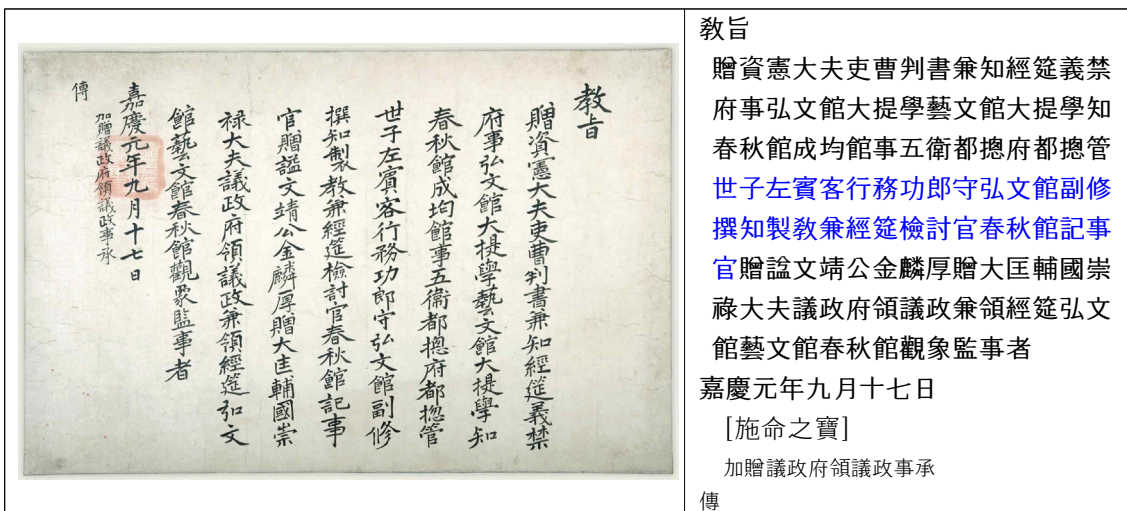 教旨
贈資憲大夫吏曹判書兼知經筵義禁
府事弘文館大提學藝文館大提學知
春秋館成均館事五衛都摠府都摠管
世子左賓客行務功郎守弘文館副修
撰知製教兼經筵檢討官春秋館記事
官贈諡文靖公金麟厚贈大匡輔國崇
禄大夫議政府領議政兼領經筵弘文
館藝文館春秋館觀象監事者
嘉慶元年九月十七日
加贈議政府領議政事承
傳
敎旨
贈資憲大夫吏曹判書兼知經筵義禁
府事弘文館大提學藝文館大提學知
春秋館成均館事五衛都摠府都摠管
世子左賓客行務功郎守弘文館副修
撰知製敎兼經筵檢討官春秋館記事
官贈諡文靖公金麟厚贈大匡輔國崇
祿大夫議政府領議政兼領經筵弘文
館藝文館春秋館觀象監事者
嘉慶元年九月十七日
[施命之寶]
加贈議政府領議政事承
傳